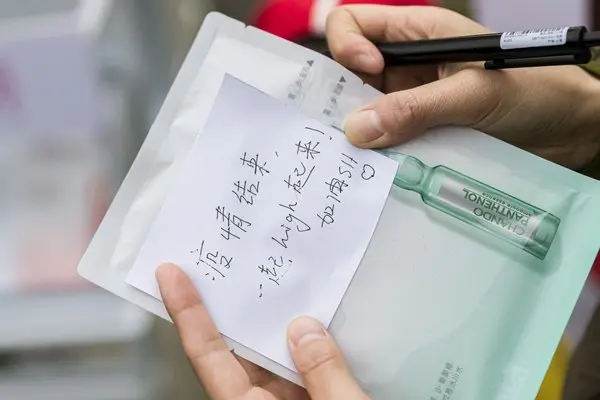 疫情结束,
一起high起来!
加油SH♡
CHANDO
PANTHENOL